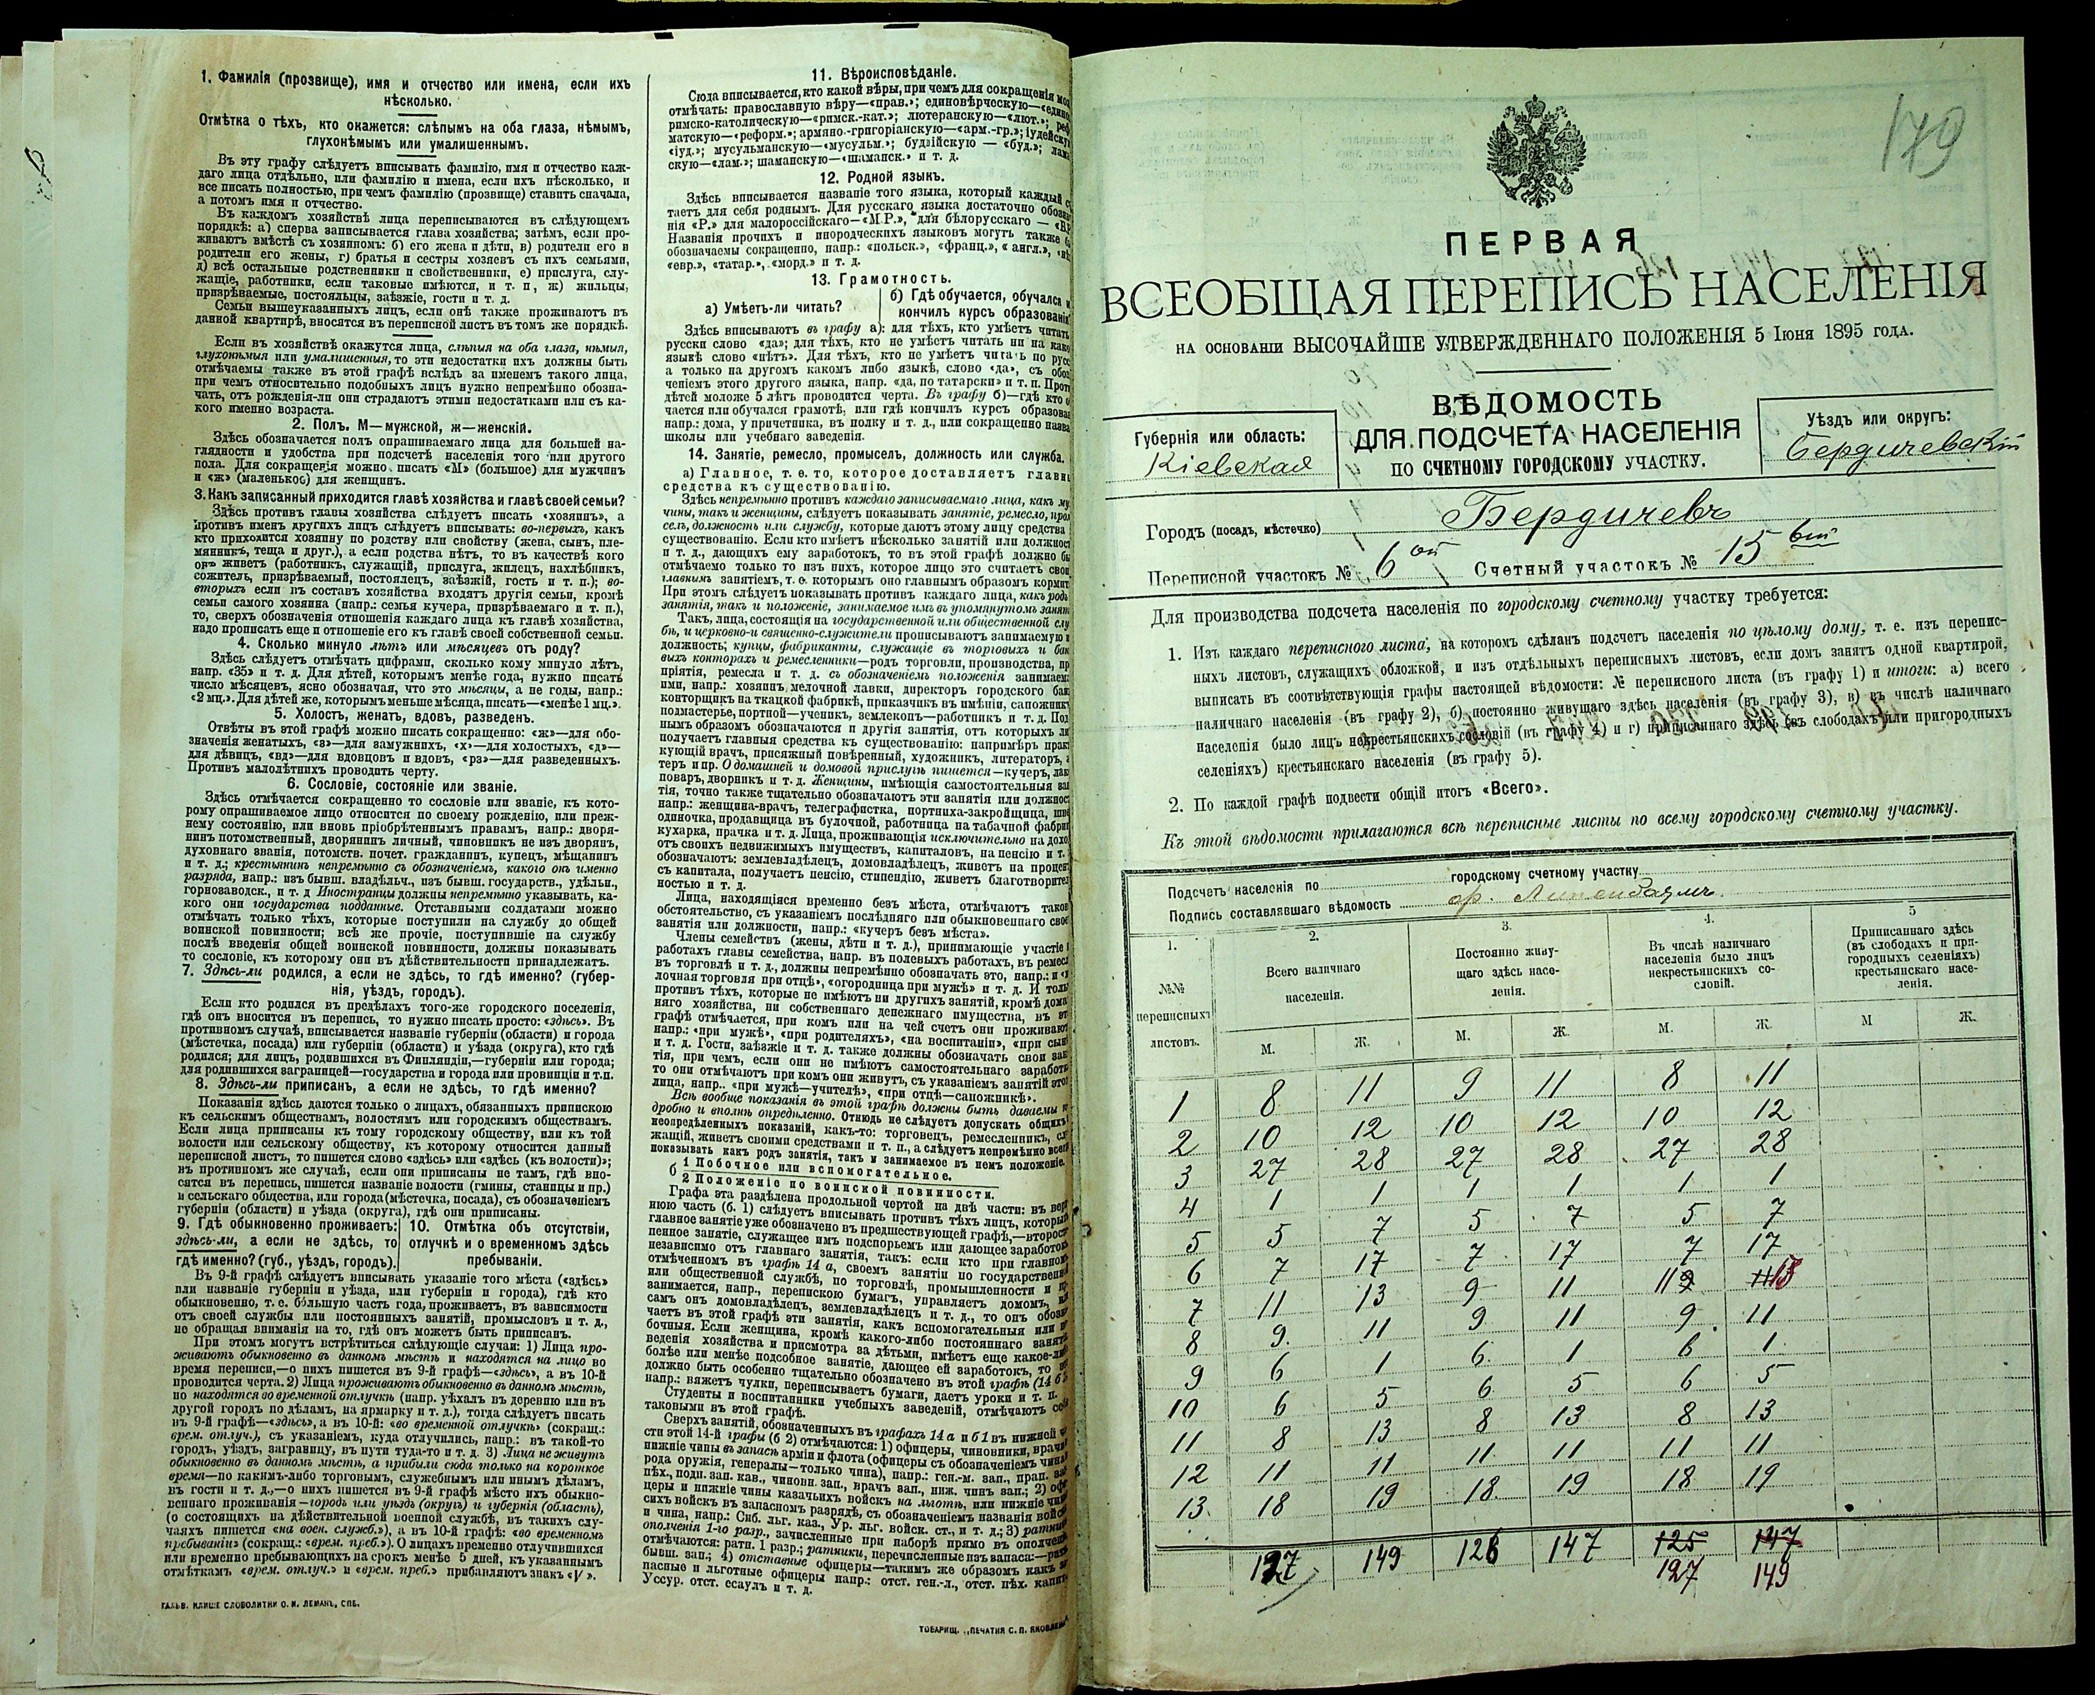 1. Фамилія (прозвище), имя и отчество или имена, если ихъ
нѣсколько.
Отмѣтка о тѣхъ, кто окажется: слѣпымъ на оба глаза, нѣмымъ,
глухонѣмымъ или умалишеннымъ.
Въ эту графу слѣдуетъ вписывать фамилію, имя и отчество каж-
даго лица отдѣльно, или фамилію и имена, если ихъ нѣсколько, и
все писать полностью, при чемъ фамилію (прозвище) ставить сначала,
а потомъ имя и отчество.
Въ каждомъ хозяйствѣ лица переписываются въ слѣдующемъ
порядкѣ: а) сперва записывается глава хозяйства; затѣмъ, если про-
живаютъ вмѣстѣ съ хозяиномъ: б) его жена и дѣти, в) родители его и
родители его жены, г) братья и сестры хозяевъ съ ихъ семьями,
д) всѣ остальные родственники и свойственники, е) прислуга, слу-
жащіе, работники, если таковые имѣются, и т. п, ж) жильцы,
призрѣваемые, постояльцы, заѣзжіе, гости и т. д.
Семьи вышеуказанныхъ лицъ, если онѣ также проживаютъ въ
данной квартирѣ, вносятся въ переписной листъ въ томъ же порядкѣ.
Если въ хозяйствѣ окажутся лица, слѣпыя на оба глаза, нѣмыя,
глухонѣмыя или умалишенныя, то эти недостатки ихъ должны быть
отмѣчаемы также въ этой графѣ вслѣдъ за именемъ такого лица,
при чемъ относительно подобныхъ лицъ нужно непремѣнно обозна-
чать, отъ рожденія-ли они страдаютъ этими недостатками или съ ка-
кого именно возраста.
2. Полъ. М—мужской, ж—женскій.
Здѣсь обозначается полъ опрашиваемаго лица для большей на-
глядности и удобства при подсчетѣ населенія того или другого
пола. Для сокращенія можно писать «М» (большое) для мужчинъ
и «ж» (маленькое) для женщинъ.
3. Какъ записанный приходится главѣ хозяйства и главѣ своей семьи?
Здѣсь противъ главы хозяйства слѣдуетъ писать «хозяинъ», а
противъ именъ другихъ лицъ слѣдуетъ вписывать: во-первыхъ, какъ
кто приходится хозяину по родству или свойству (жена, сынъ, пле-
мянникъ, теща и друг.), а если родства нѣтъ, то въ качествѣ кого
онъ живетъ (работникъ, служащій, прислуга, жилецъ, нахлѣбникъ,
сожитель, призрѣваемый, постоялецъ, заѣзжій, гость и т. п.); во-
вторыхъ если въ составъ хозяйства входятъ другія семьи, кромѣ
семьи самого хозяина (напр.: семья кучера, призрѣваемаго и т. п.),
то, сверхъ обозначенія отношенія каждаго лица къ главѣ хозяйства,
надо прописать еще и отношеніе его къ главѣ своей собственной семьи.
4. Сколько минуло лѣтъ или мѣсяцевъ отъ роду?
Здѣсь слѣдуетъ отмѣчать цифрами, сколько кому минуло лѣтъ,
напр. «35» и т. д. Для дѣтей, которымъ менѣе года, нужно писать
число мѣсяцевъ, ясно обозначая, что это мѣсяцы, а не годы, напр.:
«2 мц.». Для дѣтей же, которымъ меньше мѣсяца, писать—«менѣе 1 мц.».
5. Холостъ, женатъ, вдовъ, разведенъ.
Отвѣты въ этой графѣ можно писать сокращенно: «ж»—для обо-
значенія женатыхъ, «з»—для замужнихъ, «х»—для холостыхъ, «д»—
для дѣвицъ, «вд»—для вдовцовъ и вдовъ, «рз»—для разведенныхъ.
Противъ малолѣтнихъ проводить черту.
6. Сословіе, состояніе или званіе.
Здѣсь отмѣчается сокращенно то сословіе или званіе, къ кото-
рому опрашиваемое лицо относится по своему рожденію, или преж-
нему состоянію, или вновь пріобрѣтеннымъ правамъ, напр.: дворя-
нинъ потомственный, дворянинъ личный, чиновникъ не изъ дворянъ,
духовнаго званія, потомств. почет. гражданинъ, купецъ, мѣщанинъ
и т. д.; крестьянинъ непремѣнно съ обозначеніемъ, какого онъ именно
разряда, напр.: изъ бывш. владѣльч., изъ бывш. государств., удѣльн.,
горнозаводск., и т. д Иностранцы должны непремѣнно указывать, ка-
кого они государства подданные. Отставными солдатами можно
отмѣчать только тѣхъ, которые поступили на службу до общей
воинской повинности; всѣ же прочіе, поступившіе на службу
послѣ введенія общей воинской повинности, должны показывать
то сословіе, къ которому они въ дѣйствительности принадлежатъ.
7. Здѣсь-ли родился, а если не здѣсь, то гдѣ именно? (губер-
нія, уѣздъ, городъ).
Если кто родился въ предѣлахъ того-же городского поселенія,
гдѣ онъ вносится въ перепись, то нужно писать просто: «здѣсь». Въ
противномъ случаѣ, вписывается названіе губерніи (области) и города
(мѣстечка, посада) или губерніи (области) и уѣзда (округа), кто гдѣ
родился; для лицъ, родившихся въ Финляндіи,—губерніи или города;
для родившихся заграницей—государства и города или провинціи и т.п.
8. Здѣсь-ли приписанъ, а если не здѣсь, то гдѣ именно?
Показанія здѣсь даются только о лицахъ, обязанныхъ припискою
къ сельскимъ обществамъ, волостямъ или городскимъ обществамъ.
Если лица приписаны къ тому городскому обществу, или къ той
волости или сельскому обществу, къ которому относится данный
переписной листъ, то пишется слово «здѣсь» или «здѣсь (къ волости)»;
въ противномъ же случаѣ, если они приписаны не тамъ, гдѣ вно-
сятся въ перепись, пишется названіе волости (гмины, станицы и пр.)
и сельскаго общества, или города (мѣстечка, посада), съ обозначеніемъ
губерніи (области) и уѣзда (округа), гдѣ они приписаны.
9. Гдѣ обыкновенно проживаетъ: здѣсь-ли, а если не здѣсь, то гдѣ именно? (губ., уѣздъ, городъ).
10. Отмѣтка объ отсутствіи, отлучкѣ и о временномъ здѣсь пребываніи.
Въ 9-й графѣ слѣдуетъ вписывать указаніе того мѣста («здѣсь»
или названіе губерніи и уѣзда, или губерніи и города), гдѣ кто
обыкновенно, т. е. бо́льшую часть года, проживаетъ, въ зависимости
отъ своей службы или постоянныхъ занятій, промысловъ и т. д.,
не обращая вниманія на то, гдѣ онъ можетъ быть приписанъ.
При этомъ могутъ встрѣтиться слѣдующіе случаи: 1) Лица про-
живаютъ обыкновенно въ данномъ мѣстѣ и находятся на лицо во
время переписи,—о нихъ пишется въ 9-й графѣ—«здѣсь», а въ 10-й
проводится черта. 2) Лица проживаютъ обыкновенно въ данномъ мѣстѣ,
но находятся во временной отлучкѣ (напр. уѣхалъ въ деревню или въ
другой городъ по дѣламъ, на ярмарку и т. д.), тогда слѣдуетъ писать
въ 9-й графѣ—«здѣсь», а въ 10-й: «во временной отлучкѣ» (сокращ.:
врем. отлуч.), съ указаніемъ, куда отлучились, напр.: въ такой-то
городъ, уѣздъ, заграницу, въ пути туда-то и т. д. 3) Лица не живутъ
обыкновенно въ данномъ мѣстѣ, а прибыли сюда только на короткое
время—по какимъ-либо торговымъ, служебнымъ или инымъ дѣламъ,
въ гости и т. д.,—о нихъ пишется въ 9-й графѣ мѣсто ихъ обыкно-
веннаго проживанія—городъ или уѣздъ (округъ) и губернія (область),
(о состоящихъ на дѣйствительной военной службѣ, въ такихъ слу-
чаяхъ пишется «на воен. служб.»), а въ 10-й графѣ: «во временномъ
пребываніи» (сокращ.: «врем. преб.»). О лицахъ временно отлучившихся
или временно пребывающихъ на срокъ менѣе 5 дней, къ указаннымъ
отмѣткамъ «врем. отлуч.» и «врем. преб.» прибавляютъ знакъ «V».
ГАЛЬВ. КЛИШЕ СЛОВОЛИТНИ О. И. ЛЕМАНЪ, СПБ.
11. Вѣроисповѣданіе.
Сюда вписывается, кто какой вѣры, при чемъ для сокращенія
отмѣчать: православную вѣру—«прав.»; единовѣрческую—
римско-католическую—«римск.-кат.»; лютеранскую—«лют.»;
матскую—«реформ.»; армяно-григоріанскую—«арм.-гр.»;
«іуд.»; мусульманскую—«мусульм.»; буддійскую — «буд.»;
скую—«лам.»; шаманскую—«шаманск.» и т. д.
12. Родной языкъ.
Здѣсь вписывается названіе того языка, который каждый
таетъ для себя роднымъ. Для русскаго языка достаточно
нія «Р.» для малороссійскаго—«М.Р.», для бѣлорусскаго —
Названія прочихъ и инородческихъ языковъ могутъ также
обозначаемы сокращенно, напр.: «польск.», «франц.», «англ.»,
«евр.», «татар.», «морд.» и т. д.
13. Грамотность.
а) Умѣетъ-ли читать?
б) Гдѣ обучается, обучался
кончилъ курсъ
Здѣсь вписываютъ въ графу а): для тѣхъ, кто умѣетъ читать
русски слово «да»; для тѣхъ, кто не умѣетъ читать ни на
языкѣ слово «нѣтъ». Для тѣхъ, кто не умѣетъ читать по
а только на другомъ какомъ либо языкѣ, слово «да», съ
ченіемъ этого другого языка, напр. «да, по татарски» и т. п.
дѣтей моложе 5 лѣтъ проводится черта. Въ графу б)—гдѣ кто
чается или обучался грамотѣ, или гдѣ кончилъ курсъ
напр.: дома, у причетника, въ полку и т. д., или сокращенно
школы или учебнаго заведенія.
14. Занятіе, ремесло, промыселъ, должность или служба.
а) Главное, т. е. то, которое доставляетъ
средства къ существованію.
Здѣсь непремѣнно противъ каждаго записываемаго лица, какъ
чины, такъ и женщины, слѣдуетъ показывать занятіе, ремесло,
селъ, должность или службу, которые даютъ этому лицу средства
существованію. Если кто имѣетъ нѣсколько занятій или
и т. д., дающихъ ему заработокъ, то въ этой графѣ должно
отмѣчаемо только то изъ нихъ, которое лицо это считаетъ
главнымъ занятіемъ, т. е. которымъ оно главнымъ образомъ
При этомъ слѣдуетъ показывать противъ каждаго лица, какъ
занятія, такъ и положеніе, занимаемое имъ въ упомянутомъ
Такъ, лица, состоящія на государственной или общественной
бѣ, и церковно-и священно-служители прописываютъ занимаемую
должность; купцы, фабриканты, служащіе въ торговыхъ и
выхъ конторахъ и ремесленники—родъ торговли, производства,
пріятія, ремесла и т. д. съ обозначеніемъ положенія
ими, напр.: хозяинъ мелочной лавки, директоръ городского
конторщикъ на ткацкой фабрикѣ, приказчикъ въ имѣніи,
подмастерье, портной—ученикъ, землекопъ—работникъ и т. д.
нымъ образомъ обозначаются и другія занятія, отъ которыхъ
получаетъ главныя средства къ существованію: напримѣръ
кующій врачъ, присяжный повѣренный, художникъ, литераторъ,
теръ и пр. О домашней и домовой прислугѣ пишется—кучеръ,
поваръ, дворникъ и т. д. Женщины, имѣющія самостоятельныя
тія, точно также тщательно обозначаютъ эти занятія или
напр.: женщина-врачъ, телеграфистка, портниха-закройщица,
одиночка, продавщица въ булочной, работница на табачной
кухарка, прачка и т. д. Лица, проживающія исключительно на
отъ своихъ недвижимыхъ имуществъ, капиталовъ, на пенсію и т.
обозначаютъ: землевладѣлецъ, домовладѣлецъ, живетъ на
съ капитала, получаетъ пенсію, стипендію, живетъ
ностью и т. д.
Лица, находящіяся временно безъ мѣста, отмѣчаютъ
обстоятельство, съ указаніемъ послѣдняго или обыкновеннаго
занятія или должности, напр.: «кучеръ безъ мѣста».
Члены семействъ (жены, дѣти и т. д.), принимающіе участіе
работахъ главы семейства, напр. въ полевыхъ работахъ, въ
въ торговлѣ и т. д., должны непремѣнно обозначать это, напр.:
лочная торговля при отцѣ», «огородница при мужѣ» и т. д. И
противъ тѣхъ, которые не имѣютъ ни другихъ занятій, кромѣ
няго хозяйства, ни собственнаго денежнаго имущества, въ
графѣ отмѣчается, при комъ или на чей счетъ они
напр.: «при мужѣ», «при родителяхъ», «на воспитаніи», «при
и т. д. Гости, заѣзжіе и т. д. также должны обозначать свои
тія, при чемъ, если они не имѣютъ самостоятельнаго
то они отмѣчаютъ при комъ они живутъ, съ указаніемъ занятій
лица, напр.. «при мужѣ—учителѣ», «при отцѣ—сапожникѣ».
Всѣ вообще показанія въ этой графѣ должны быть даваемы
дробно и вполнѣ опредѣленно. Отнюдь не слѣдуетъ допускать
неопредѣленныхъ показаній, какъ-то: торговецъ, ремесленникъ,
жащій, живетъ своими средствами и т. п., а слѣдуетъ непремѣнно
показывать какъ родъ занятія, такъ и занимаемое въ немъ положеніе.
б 1 Побочное или вспомогательное.
2 Положеніе по воинской повинности.
Графа эта раздѣлена продольной чертой на двѣ части: въ
нюю часть (б. 1) слѣдуетъ вписывать противъ тѣхъ лицъ,
главное занятіе уже обозначено въ предшествующей графѣ,—
пенное занятіе, служащее имъ подспорьемъ или дающее
независимо отъ главнаго занятія, такъ: если кто при
отмѣченномъ въ графѣ 14 а, своемъ занятіи по
или общественной службѣ, по торговлѣ, промышленности и
занимается, напр., перепискою бумагъ, управляетъ домомъ,
самъ онъ домовладѣлецъ, землевладѣлецъ и т. д., то онъ
чаетъ въ этой графѣ эти занятія, какъ вспомогательныя или
бочныя. Если женщина, кромѣ какого-либо постояннаго
веденія хозяйства и присмотра за дѣтьми, имѣетъ еще
болѣе или менѣе подсобное занятіе, дающее ей заработокъ, то
должно быть особенно тщательно обозначено въ этой графѣ
напр.: вяжетъ чулки, переписываетъ бумаги, даетъ уроки и т. п.
Студенты и воспитанники учебныхъ заведеній, отмѣчаютъ
таковыми въ этой графѣ.
Сверхъ занятій, обозначенныхъ въ графахъ 14 а и б 1 въ нижней
сти этой 14-й графы (б 2) отмѣчаются: 1) офицеры, чиновники,
нижніе чины въ запасѣ арміи и флота (офицеры съ обозначеніемъ
рода оружія, генералы—только чина), напр.: ген.-м. зап., прап.
пѣх., подп. зап. кав., чиновн. зап., врачъ зап., ниж. чинъ зап.; 2)
церы и нижніе чины казачьихъ войскъ на льготѣ, или нижніе
сихъ войскъ въ запасномъ разрядѣ, съ обозначеніемъ названія
и чина, напр.: Сиб. льг. каз., Ур. льг. войск. ст., и т. д.; 3)
ополченія 1-го разр., зачисленные при наборѣ прямо въ
отмѣчаются: ратн. 1 разр.; ратники, перечисленные изъ запаса:—
бывш. зап.; 4) отставные офицеры—такимъ же образомъ какъ
пасные и льготные офицеры напр.: отст. ген.-л., отст. пѣх.
Уссур. отст. есаулъ и т. д.
ТОВАРИЩ. „ПЕЧАТНЯ С. П. ЯКОВЛЕВА
179
ПЕРВАЯ
ВСЕОБЩАЯ ПЕРЕПИСЬ НАСЕЛЕНІЯ
НА ОСНОВАНІИ ВЫСОЧАЙШЕ УТВЕРЖДЕННАГО ПОЛОЖЕНІЯ 5 Іюня 1895 года.
ВѢДОМОСТЬ
ДЛЯ ПОДСЧЕТА НАСЕЛЕНІЯ
ПО СЧЕТНОМУ ГОРОДСКОМУ УЧАСТКУ.
Губернія или область:
Кіевская
Уѣздъ или округъ:
Бердичевскій
Городъ (посадъ, мѣстечко) Бердичевъ
Переписной участокъ № 6 ой Счетный участокъ № 15 
Для производства подсчета населенія по городскому счетному участку требуется:
1. Изъ каждаго переписного листа, на которомъ сдѣланъ подсчетъ населенія по цѣлому дому, т. е. изъ перепис-
ныхъ листовъ, служащихъ обложкой, и изъ отдѣльныхъ переписныхъ листовъ, если домъ занятъ одной квартирой,
выписать въ соотвѣтствующія графы настоящей вѣдомости: № переписного листа (въ графу 1) и итоги: а) всего
наличнаго населенія (въ графу 2), б) постоянно живущаго здѣсь населенія (въ графу 3), в) въ числѣ наличнаго
населенія было лицъ некрестьянскихъ сословій (въ графу 4) и г) приписаннаго здѣсь (въ слободахъ или пригородныхъ
селеніяхъ) крестьянскаго населенія (въ графу 5).
2. По каждой графѣ подвести общій итогъ «Всего».
Къ этой вѣдомости прилагаются всѣ переписные листы по всему городскому счетному участку.
Подсчетъ населенія по городскому счетному участку
Подпись составлявшаго вѣдомость
1. №№ переписныхъ листовъ.
2. Всего наличнаго населенія.
3. Постоянно живу-щаго здѣсь насе-ленія.
4. Въ числѣ наличнаго населенія было лицъ некрестьянскихъ со-словій.
5 Приписаннаго здѣсь (въ слободахъ и при-городныхъ селеніяхъ) крестьянскаго насе-ленія.
М. Ж. М. Ж. М. Ж. М Ж.
1 8 11 9 11 8 11
2 10 12 10 12 10 12
3 27 28 27 28 27 28
4 1 1 1 1 1 1
5 5 7 5 7 5 7
6 7 17 7 17 7 17
7 11 13 9 11 11 9 11 13
8 9. 11 9 11 9. 11
9 6 1 6. 1 6 1.
10 6 5 6 5 6 5
11 8 13 8 13 8 13
12 11 11 11 11 11 11
13. 18 19 18. 19 18 19
127 149 126 147 125 147
127 149